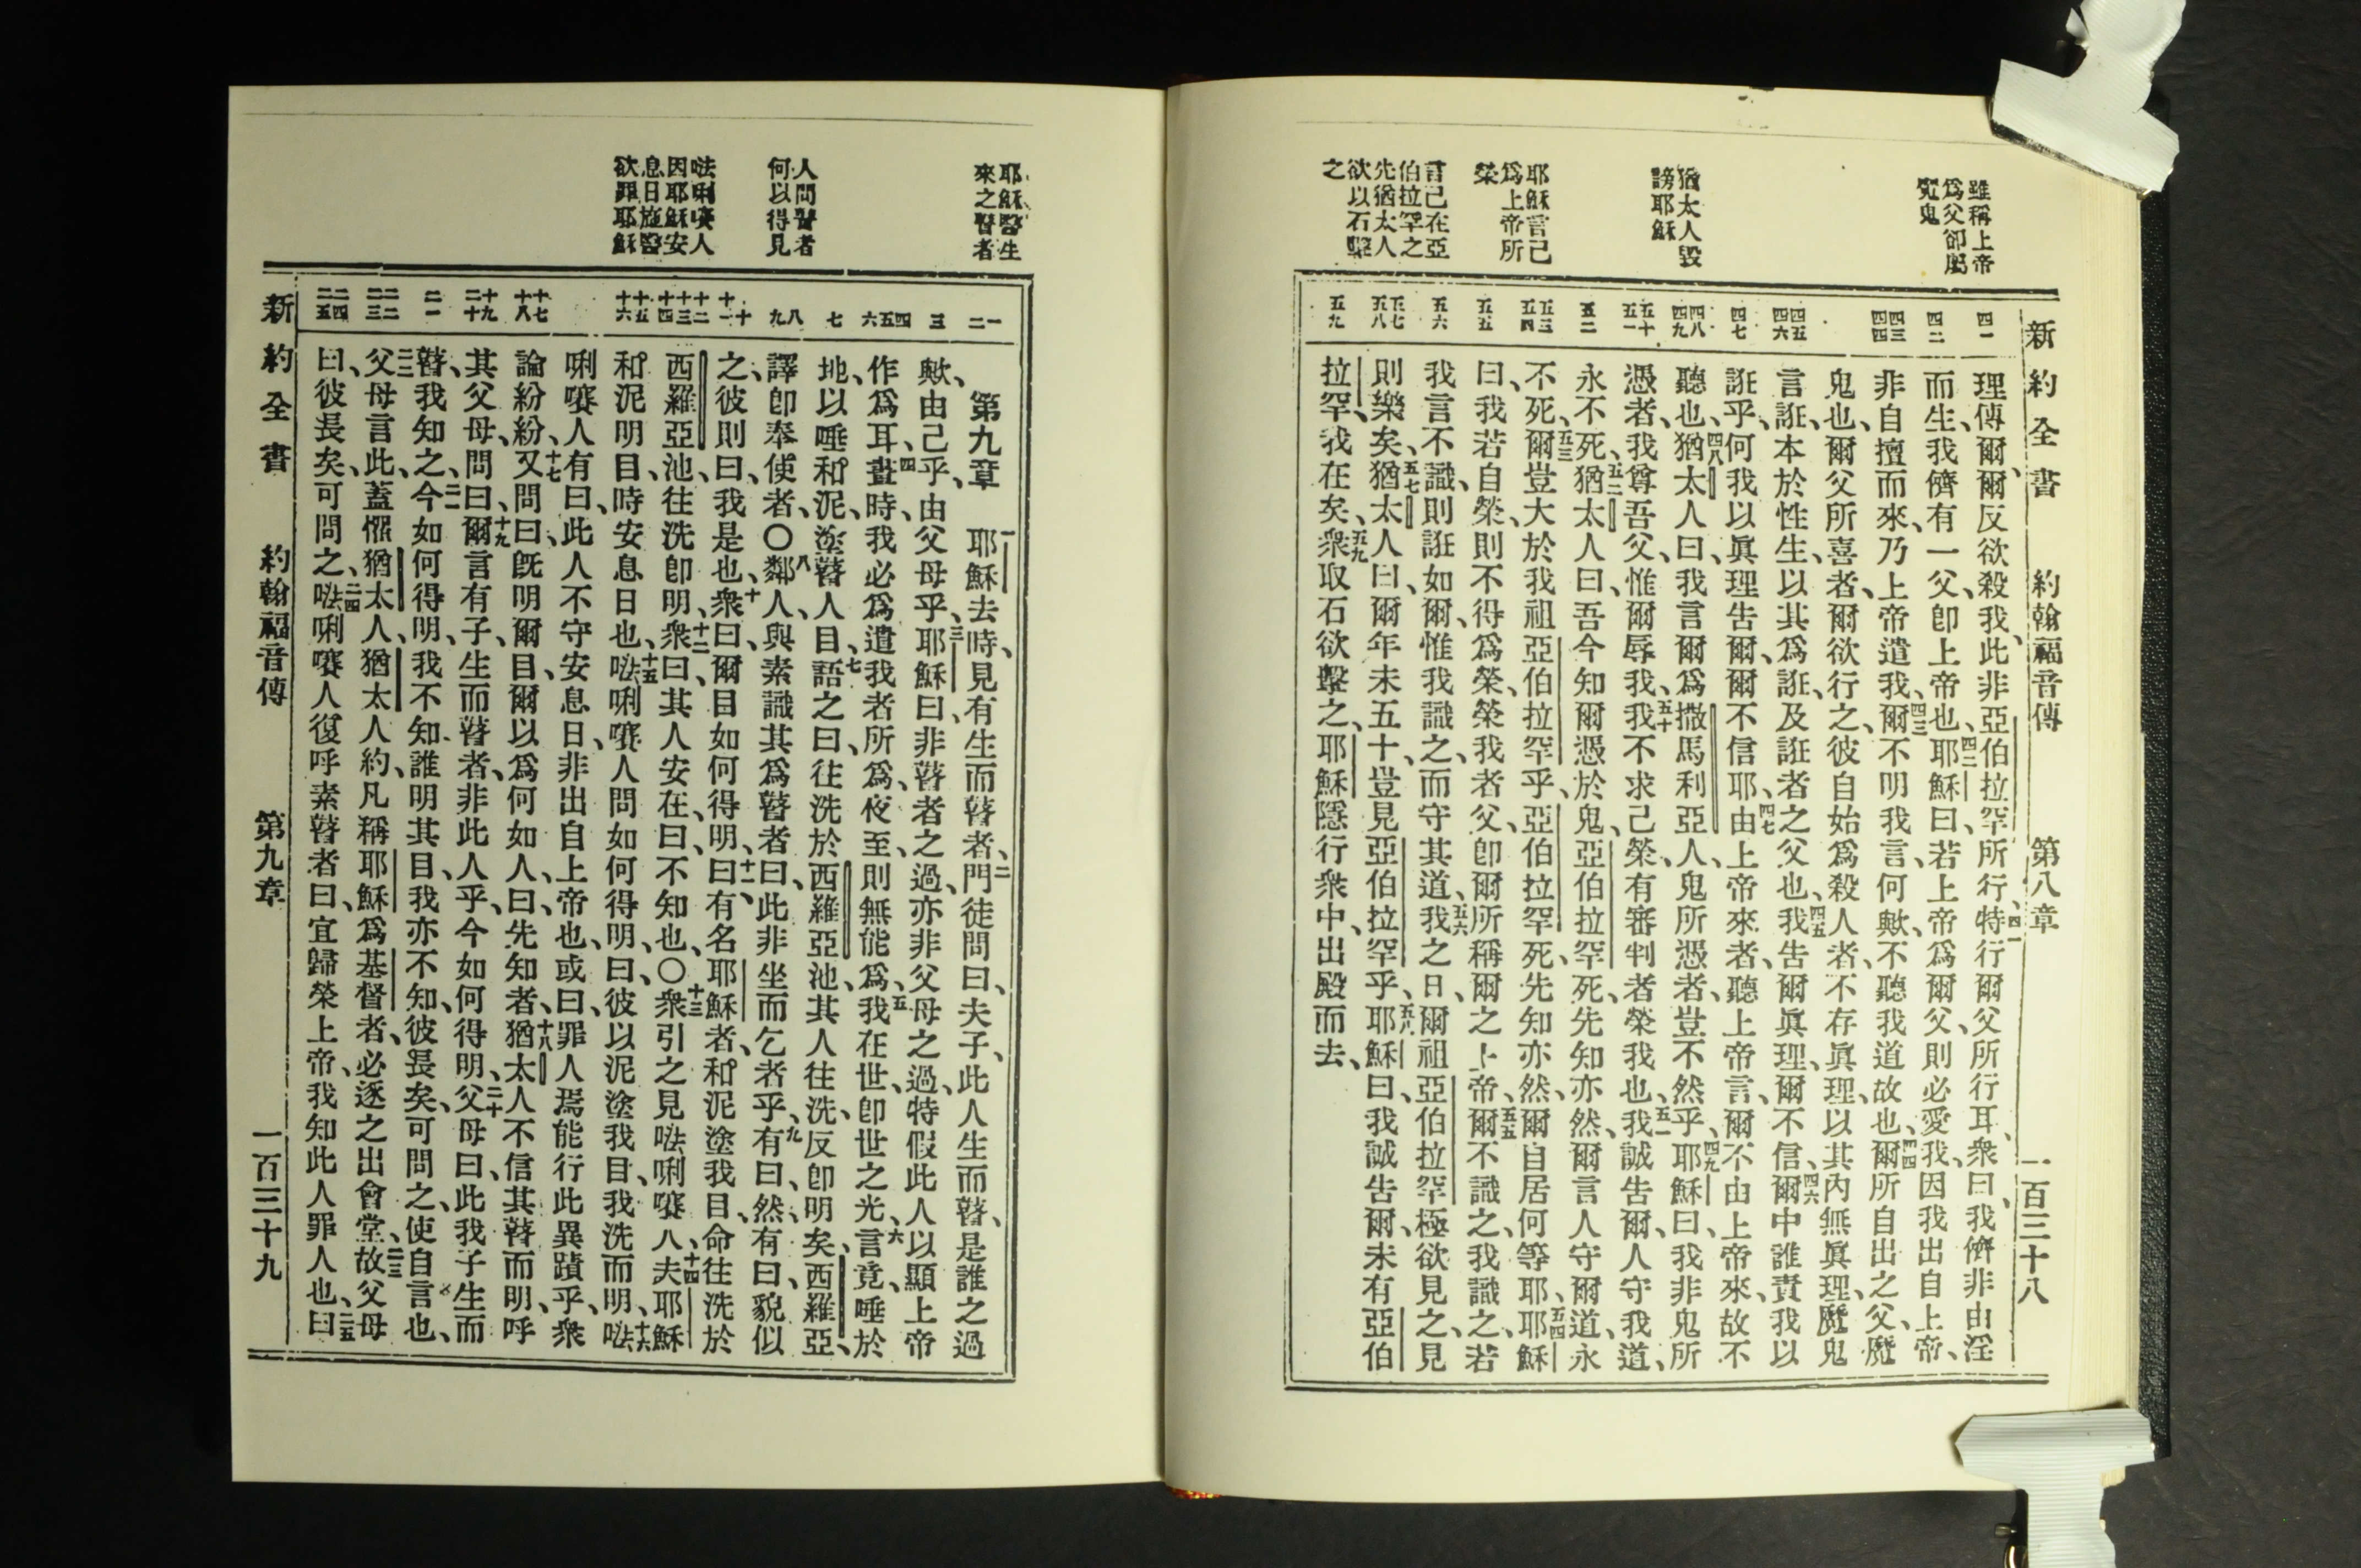 新約全書 約翰福音傳 第八章 一百三十八
雖稱上帝
爲父卻屬
魔鬼
猶太人毀
謗耶穌
耶穌言己
爲上帝所
榮
言己在亞
伯拉罕之
先猶太人
欲以石擊
之
四一
四二
四三
四四
四五
四六
四七
四八
四九
五十
五一
五二
五三
五四
五五
五六
五七
五八
五九
理傳爾、爾反欲殺我、此非亞伯拉罕所行、四一特行爾父所行耳、衆曰、我儕非由淫
而生、我儕有一父、卽上帝也、四二耶穌曰、若上帝爲爾父、則必愛我、因我出自上帝、
非自擅而來、乃上帝遣我、四三爾不明我言、何歟、不聽我道故也、四四爾所自出之父、魔
鬼也、爾父所喜者、爾欲行之、彼自始爲殺人者、不存眞理、以其內無眞理、魔鬼
言誑、本於性生、以其爲誑、及誑者之父也、四五我告爾眞理、爾不信、四六爾中誰責我以
誑乎、何我以眞理告爾、爾不信耶、四七由上帝來者、聽上帝言、爾不由上帝來、故不
聽也、四八猶太人曰、我言爾爲撒馬利亞人、鬼所憑者、豈不然乎、四九耶穌曰、我非鬼所
憑者、我尊吾父、惟爾辱我、五十我不求己榮、有審判者榮我也、五一我誠告爾、人守我道、
永不死、五二猶太人曰、吾今知爾憑於鬼、亞伯拉罕死、先知亦然、爾言人守爾道、永
不死、五三爾豈大於我祖亞伯拉罕乎、亞伯拉罕死、先知亦然、爾自居何等耶、五四耶穌
曰、我若自榮、則不得爲榮、榮我者父、卽爾所稱爾之上帝、五五爾不識之、我識之、若
我言不識、則誑如爾、惟我識之、而守其道、五六我之日、爾祖亞伯拉罕極欲見之、見
則樂矣、五七猶太人曰、爾年未五十、豈見亞伯拉罕乎、五八耶穌曰、我誠告爾、未有亞伯
拉罕、我在矣、五九衆取石欲擊之、耶穌隱、行衆中、出殿而去、
耶穌醫生
來之瞽者
人問瞽者
何以得見
𠵽唎㘔人
因耶穌安
息日施醫
欲罪耶穌
一
二
三
四
五
六
七
八
九
十
十一
十二
十三
十四
十五
十六
十七
十八
十九
二十
二一
二二
二三
二四
二五
第九章 一耶穌去時、見有生而瞽者、二門徒問曰、夫子、此人生而瞽、是誰之過
歟、由己乎、由父母乎、三耶穌曰、非瞽者之過、亦非父母之過、特假此人以顯上帝
作爲耳、四晝時、我必爲遣我者所爲、夜至、則無能爲、五我在世、卽世之光、六言竟、唾於
地、以唾和泥、塗瞽人目、七語之曰、往洗於西羅亞池、其人往洗、反卽明矣、西羅亞、
譯卽奉使者、〇八鄰人與素識其爲瞽者、曰、此非坐而乞者乎、九有曰、然、有曰、貌似
之、彼則曰、我是也、十衆曰、爾目如何得明、十一曰、有名耶穌者、和泥塗我目、命往洗於
西羅亞池、往洗卽明、十二衆曰、其人安在、曰、不知也、〇十三衆引之見法唎㘔人、十四夫耶穌
和泥明目、時安息日也、十五法唎㘔人問如何得明、曰、彼以泥塗我目、我洗而明、十六法
唎㘔人有曰、此人不守安息日、非出自上帝也、或曰、罪人焉能行此異蹟乎、衆
論紛紛、十七又問曰、旣明爾目、爾以爲何如人、曰、先知者、十八猶太人不信其瞽而明、呼
其父母、十九問曰、爾言有子、生而瞽者、非此人乎、今如何得明、二十父母曰、此我子、生而
瞽、我知之、二一今如何得明、我不知、誰明其目、我亦不知、彼長矣、可問之、使自言也、
二二父母言此、蓋懼猶太人、猶太人約、凡稱耶穌爲基督者、必逐之出會堂、二三故父母
曰、彼長矣、可問之、二四法唎㘔人復呼素瞽者曰、宜歸榮上帝、我知此人罪人也、二五曰
新約全書 約翰福音傳 第九章 一百三十九